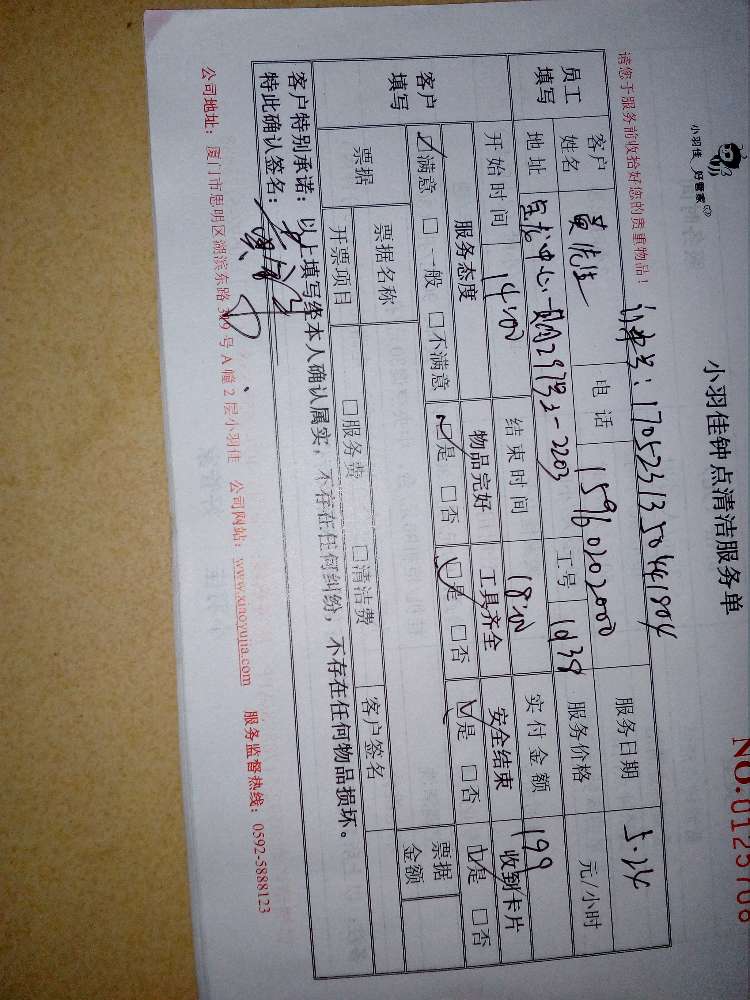 小羽佳 好管家
小羽佳钟点清洁服务单
NO.0125708
请您于服务前收拾好您的贵重物品！
订单号：1705231350441804
员工填写
客户姓名 黄先生 电话 15960202000 服务日期 5.24
地址 29号之-2203 工号 1038 服务价格 元/小时
开始时间 14:00 结束时间 18:00 实付金额 199
客户填写
服务态度 物品完好 工具齐全 安全结束 收到卡片
☑满意 □一般 □不满意 ☑是 □否 ☑是 □否 ☑是 □否 ☑是 □否
票据 票据名称 票据金额
开票项目 □服务费 □清洁费 客户签名
客户特别承诺：以上填写经本人确认属实，不存在任何纠纷，不存在任何物品损坏。
特此确认签名：
公司地址：厦门市思明区湖滨东路309号A幢2层小羽佳 公司网站：www.xiaoyujia.com 服务监督热线：0592-5888123